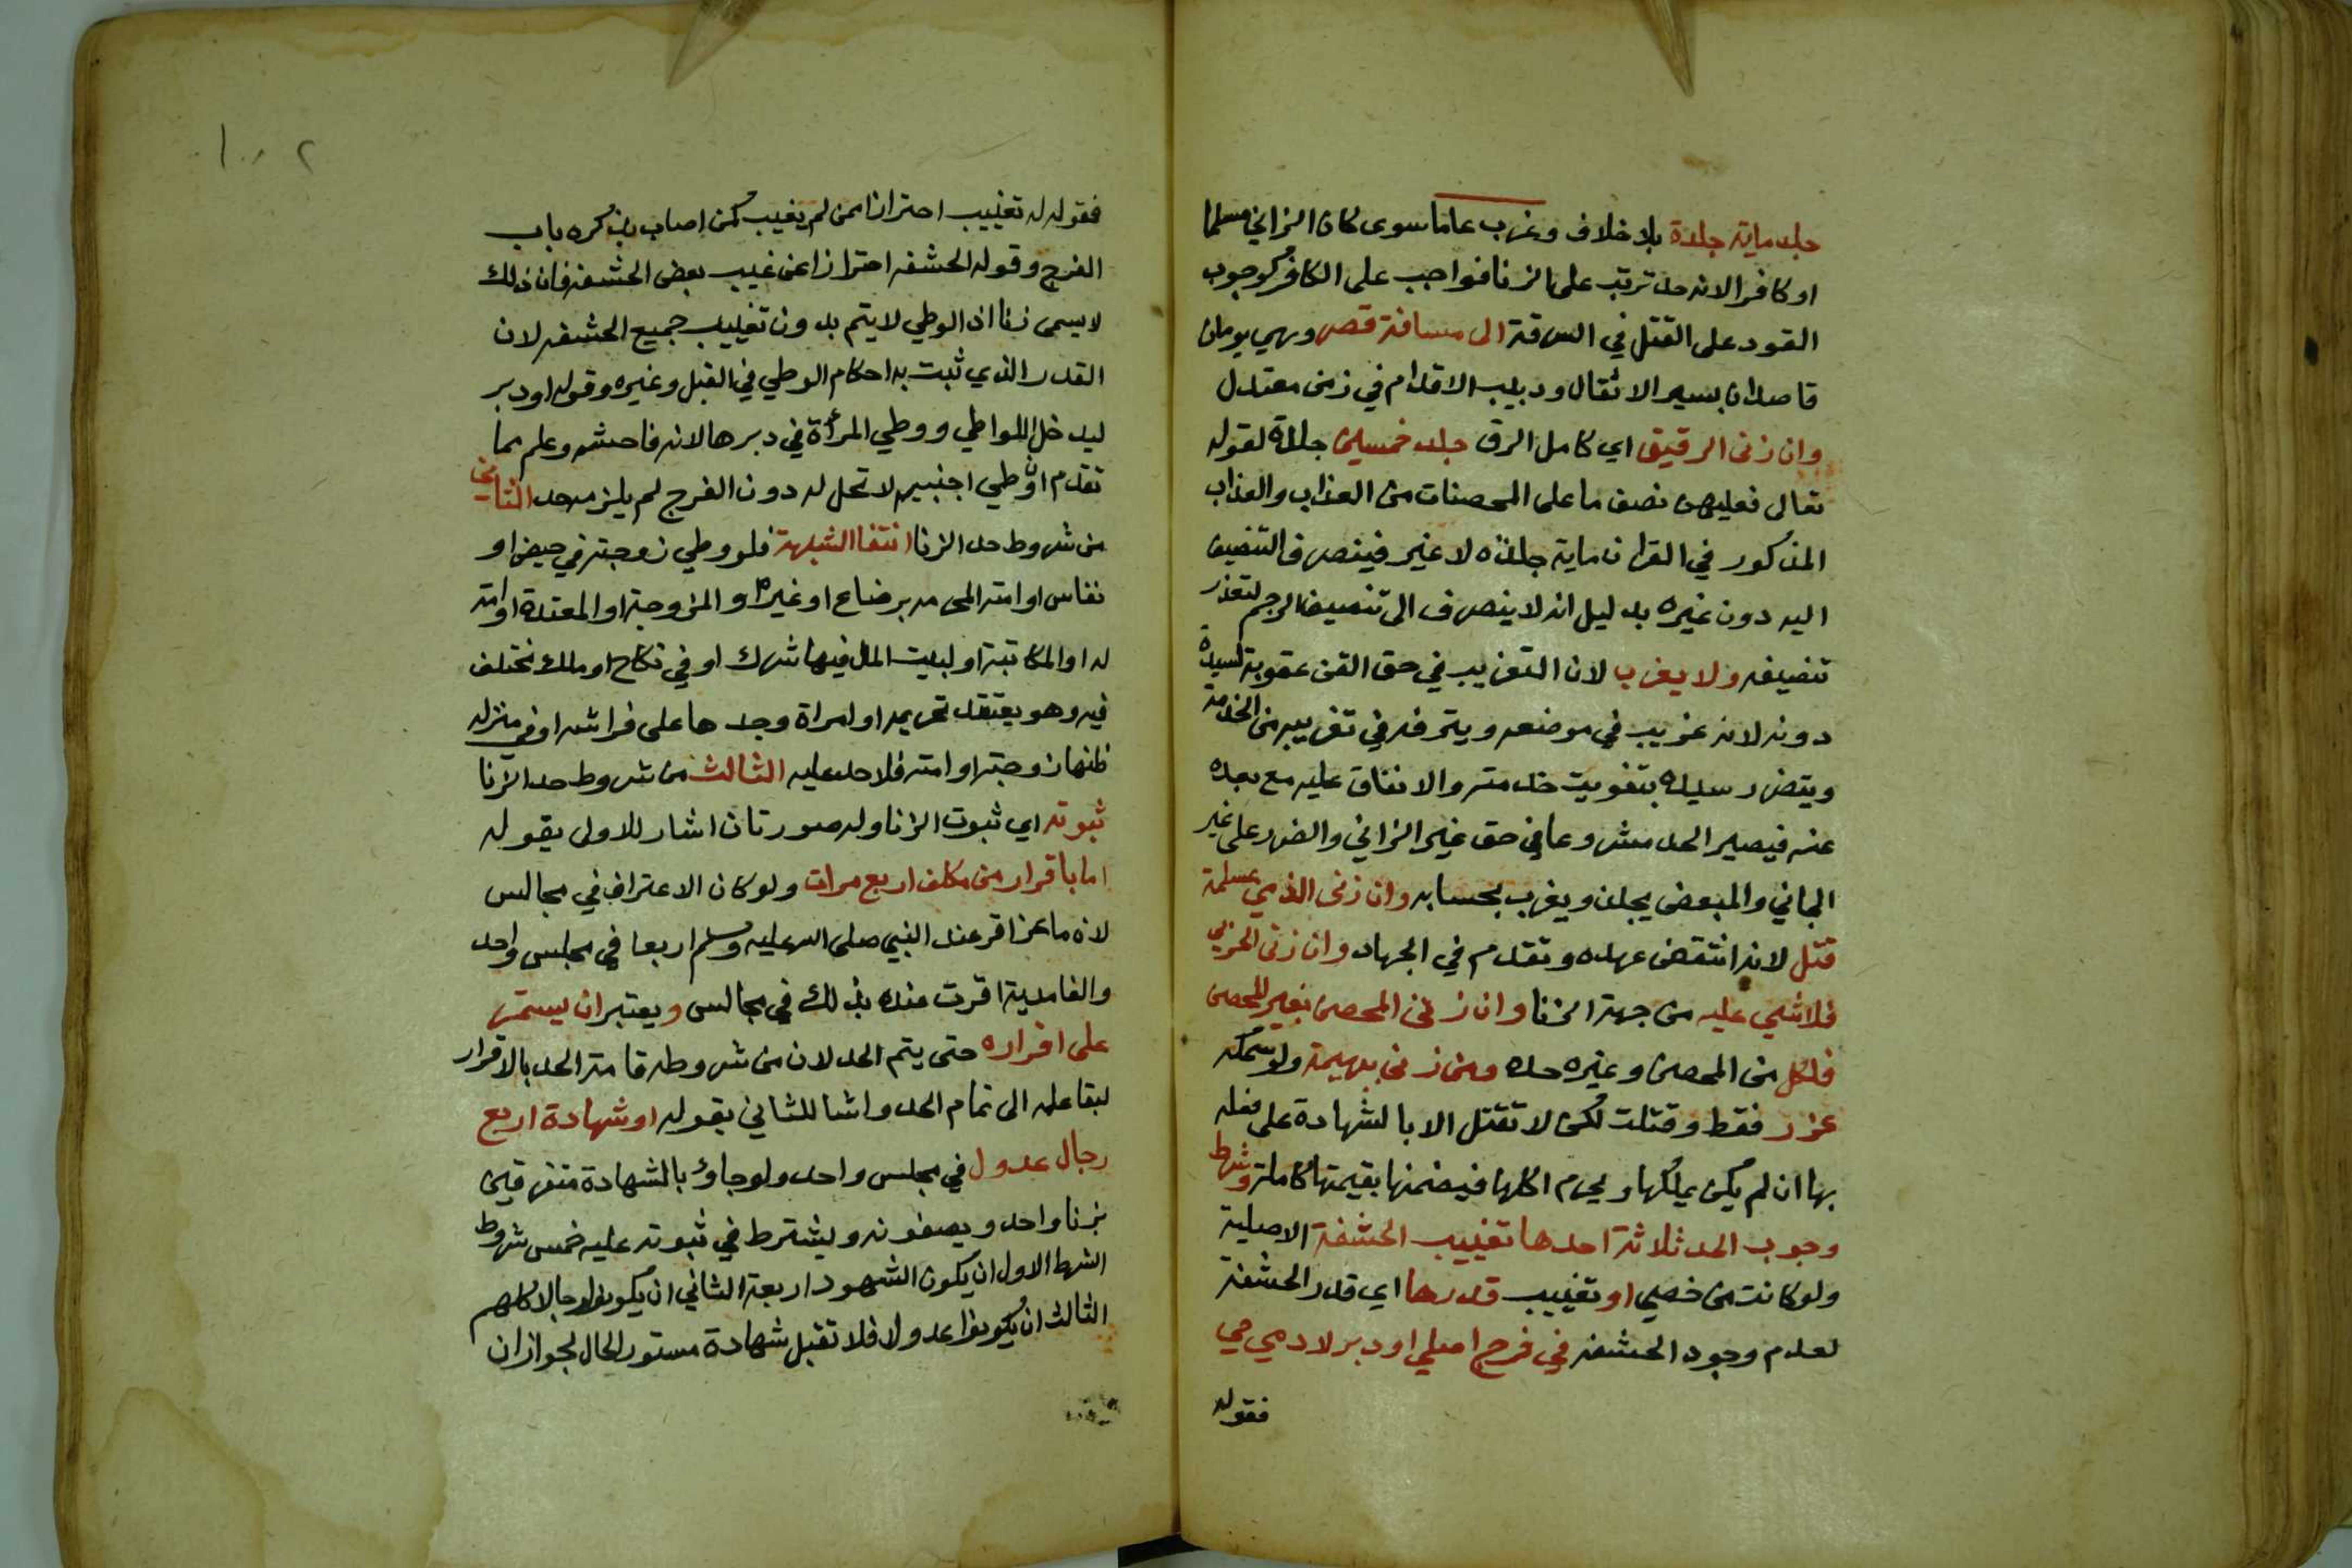 جلد ماية جلدة بلا خلاف وغرب عاما سوى كان الزاني مسلما
او كافرا لانه حد ترتب على الزنا فواجب على الكافر كوجوب
القود على القتل في السرقة الى مسافة قصر وهي يومان
قاصدان بسير الاثقال ودبيب الاقدام في زمن معتدل
وان زنى الرقيق اي كامل الرق جلد خمسين جلدة لقوله
تعالى فعليهن نصف ما على المحصنات من العذاب والعذاب
المذكور في القران ماية جلدة لا غير فينصرف التنصيف
اليه دون غيره بدليل انه لا ينصرف الى تنصيف الرجم لتعذر
تنصيفه ولا يغرب لان التغريب في حق القن عقوبة لسيده
دونه لانه غريب في موضعه ويترفه في تغريبه من الخدمة
ويتضرر سيده بتفويت خدمته والانفاق عليه مع بعده
عنه فيصير الحد مشروعا في حق غير الزاني والضرر على غير
الجاني والمبعض يجلد ويغرب بحسابه وان زنى الذمي بمسلمة
قتل لانه انتقض عهده وتقدم في الجهاد وان زنى الحربي
فلا شي عليه من جهة الزنا وان زنى المحصن بغير المحصن
فلكل من المحصن وغيره حده ومن زنى ببهيمة ولو سمكة
عزر فقط وقتلت لكن لا تقتل الا بالشهادة على فعله
بها ان لم يكن يملكها ويحرم اكلها فيضمنها بقيمتها كاملة وشرط
وجوب الحد ثلاثة احدها تغييب الحشفة الاصلية
ولو كانت من خصي او تغييب قدرها اي قدر الحشفة
لعدم وجود الحشفة في فرج اصلي او دبر لادمي حي
فقوله
١٠٢
فقوله تغييب احترازا ممن لم يغيب كمن اصاب بذكره باب
الفرج وقوله الحشفه احترازا عن غيب بعض الحشفه فان ذلك
لا يسمى زنا اذ الوطي لا يتم بدون تغييب جميع الحشفه لان
القدر الذي ثبت به احكام الوطي في القبل وغيره وقوله او دبر
ليدخل اللواطي ووطي المرأة في دبرها لانه فاحشه وعلم مما
تقدم او وطي اجنبيه لا تحل له دون الفرج لم يلزمه حد الثاني
من شروط حد الزنا انتفا الشبهة فلو وطي زوجته في حيض او
نفاس او امته المحرمه برضاع او غيره او المزوجة او المعتدة او امته
له او المكاتبة او لبيت المال فيها شرك او في نكاح او ملك مختلف
فيه وهو يعتقد تحريمه او امراة وجدها على فراشه او في منزله
ظنها زوجته او امته فلا حد عليه الثالث من شروط حد الزنا
ثبوته اي ثبوت الزنا وله صورتان اشار للاول بقوله
اما باقرار من مكلف اربع مرات ولو كان الاعتراف في مجالس
لان ماعز اقر عند النبي صلى الله عليه وسلم اربعا في مجلس واحد
والغامدية اقرت عنده بذلك في مجالس ويعتبر ان يستمر
على اقراره حتى يتم الحد لان من شروط اقامة الحد بالاقرار
لبقا عليه الى تمام الحد واشا للثاني بقوله او شهادة اربع
رجال عدول في مجلس واحد ولو جاؤ بالشهادة متفرقين
بزنا واحد ويصفونه ويشترط في ثبوته عليه خمس شروط
الشرط الاول ان يكون الشهود اربعة الثاني ان يكونوا رجالا كلهم
الثالث ان يكونوا عدولا فلا تقبل شهادة مستور الحال لجواز ان